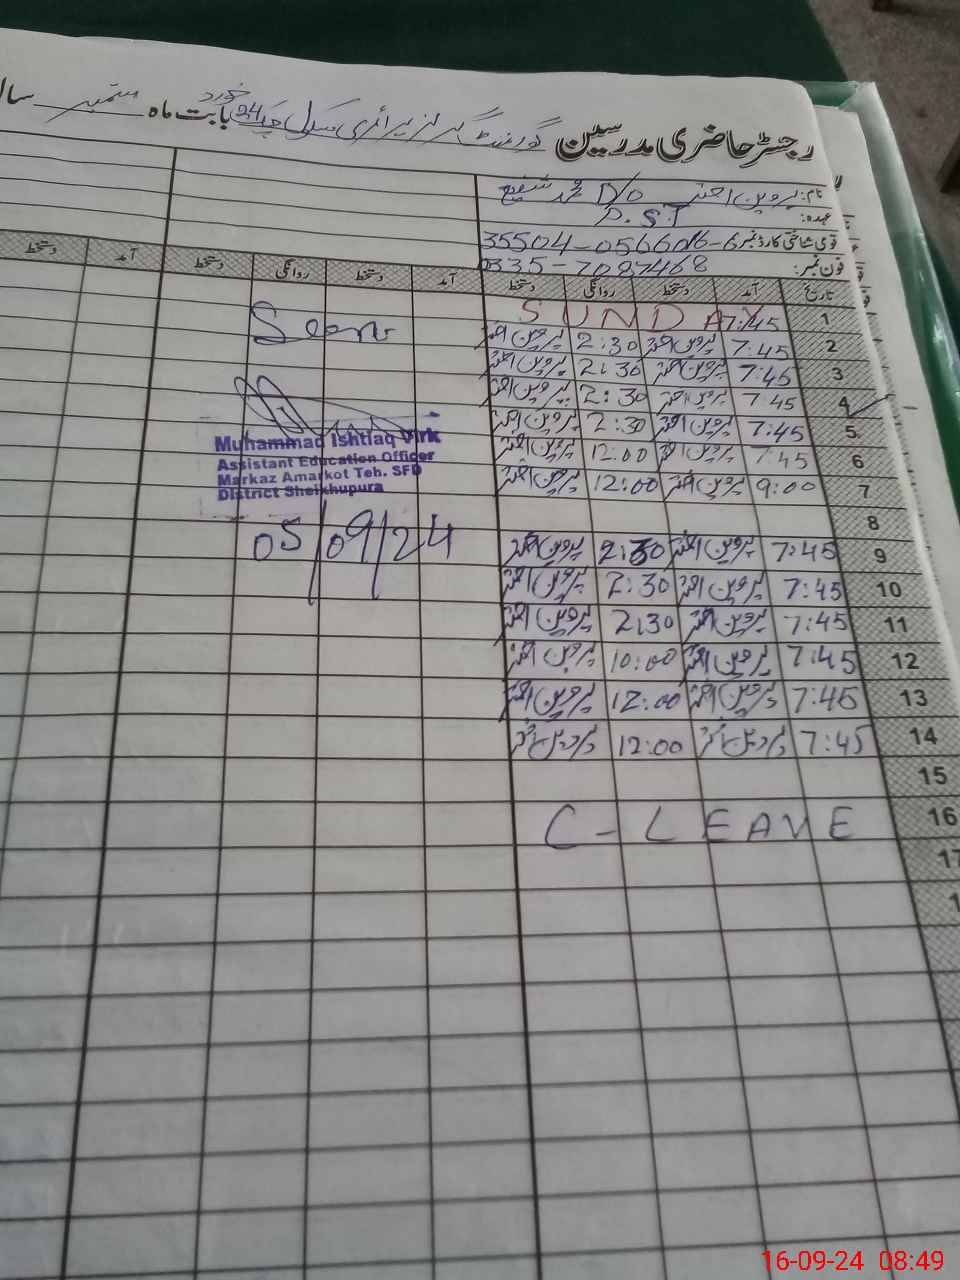 رجسٹر حاضری مدرسین گورنمنٹ گرلز پرائمری سکول چک 24 خورد بابت ماہ ستمبر سال
نام: پروین اختر D/O محمد شفیع
عہدہ: P.S.T
قومی شناختی کارڈ نمبر 35504-0566
فون نمبر: 0335-7087468
تاریخ آمد دستخط روانگی دستخط آمد دستخط روانگی دستخط آمد دستخط
1 7:45 SUNDAY
2 7:45 پروین اختر 2:30 پروین اختر
3 7:45 پروین اختر 2:30 پروین اختر
4 7:45 پروین اختر 2:30 پروین اختر
5 7:45 پروین اختر 2:30 پروین اختر
6 7:45 پروین اختر 12:00 پروین اختر
7 9:00 پروین اختر 12:00 پروین اختر
8
9 7:45 پروین اختر 2:30 پروین اختر
10 7:45 پروین اختر 2:30 پروین اختر
11 7:45 پروین اختر 2:30 پروین اختر
12 7:45 پروین اختر 10:00 پروین اختر
13 7:45 پروین اختر 12:00 پروین اختر
14 7:45 پروین اختر 12:00 پروین اختر
15
16 C-LEAVE
17
Seen
Muhammad Ishtiaq Virk
Assistant Education Officer
Markaz Amarkot Teh. SFD
District Sheikhupura
05/09/24
16-09-24 08:49